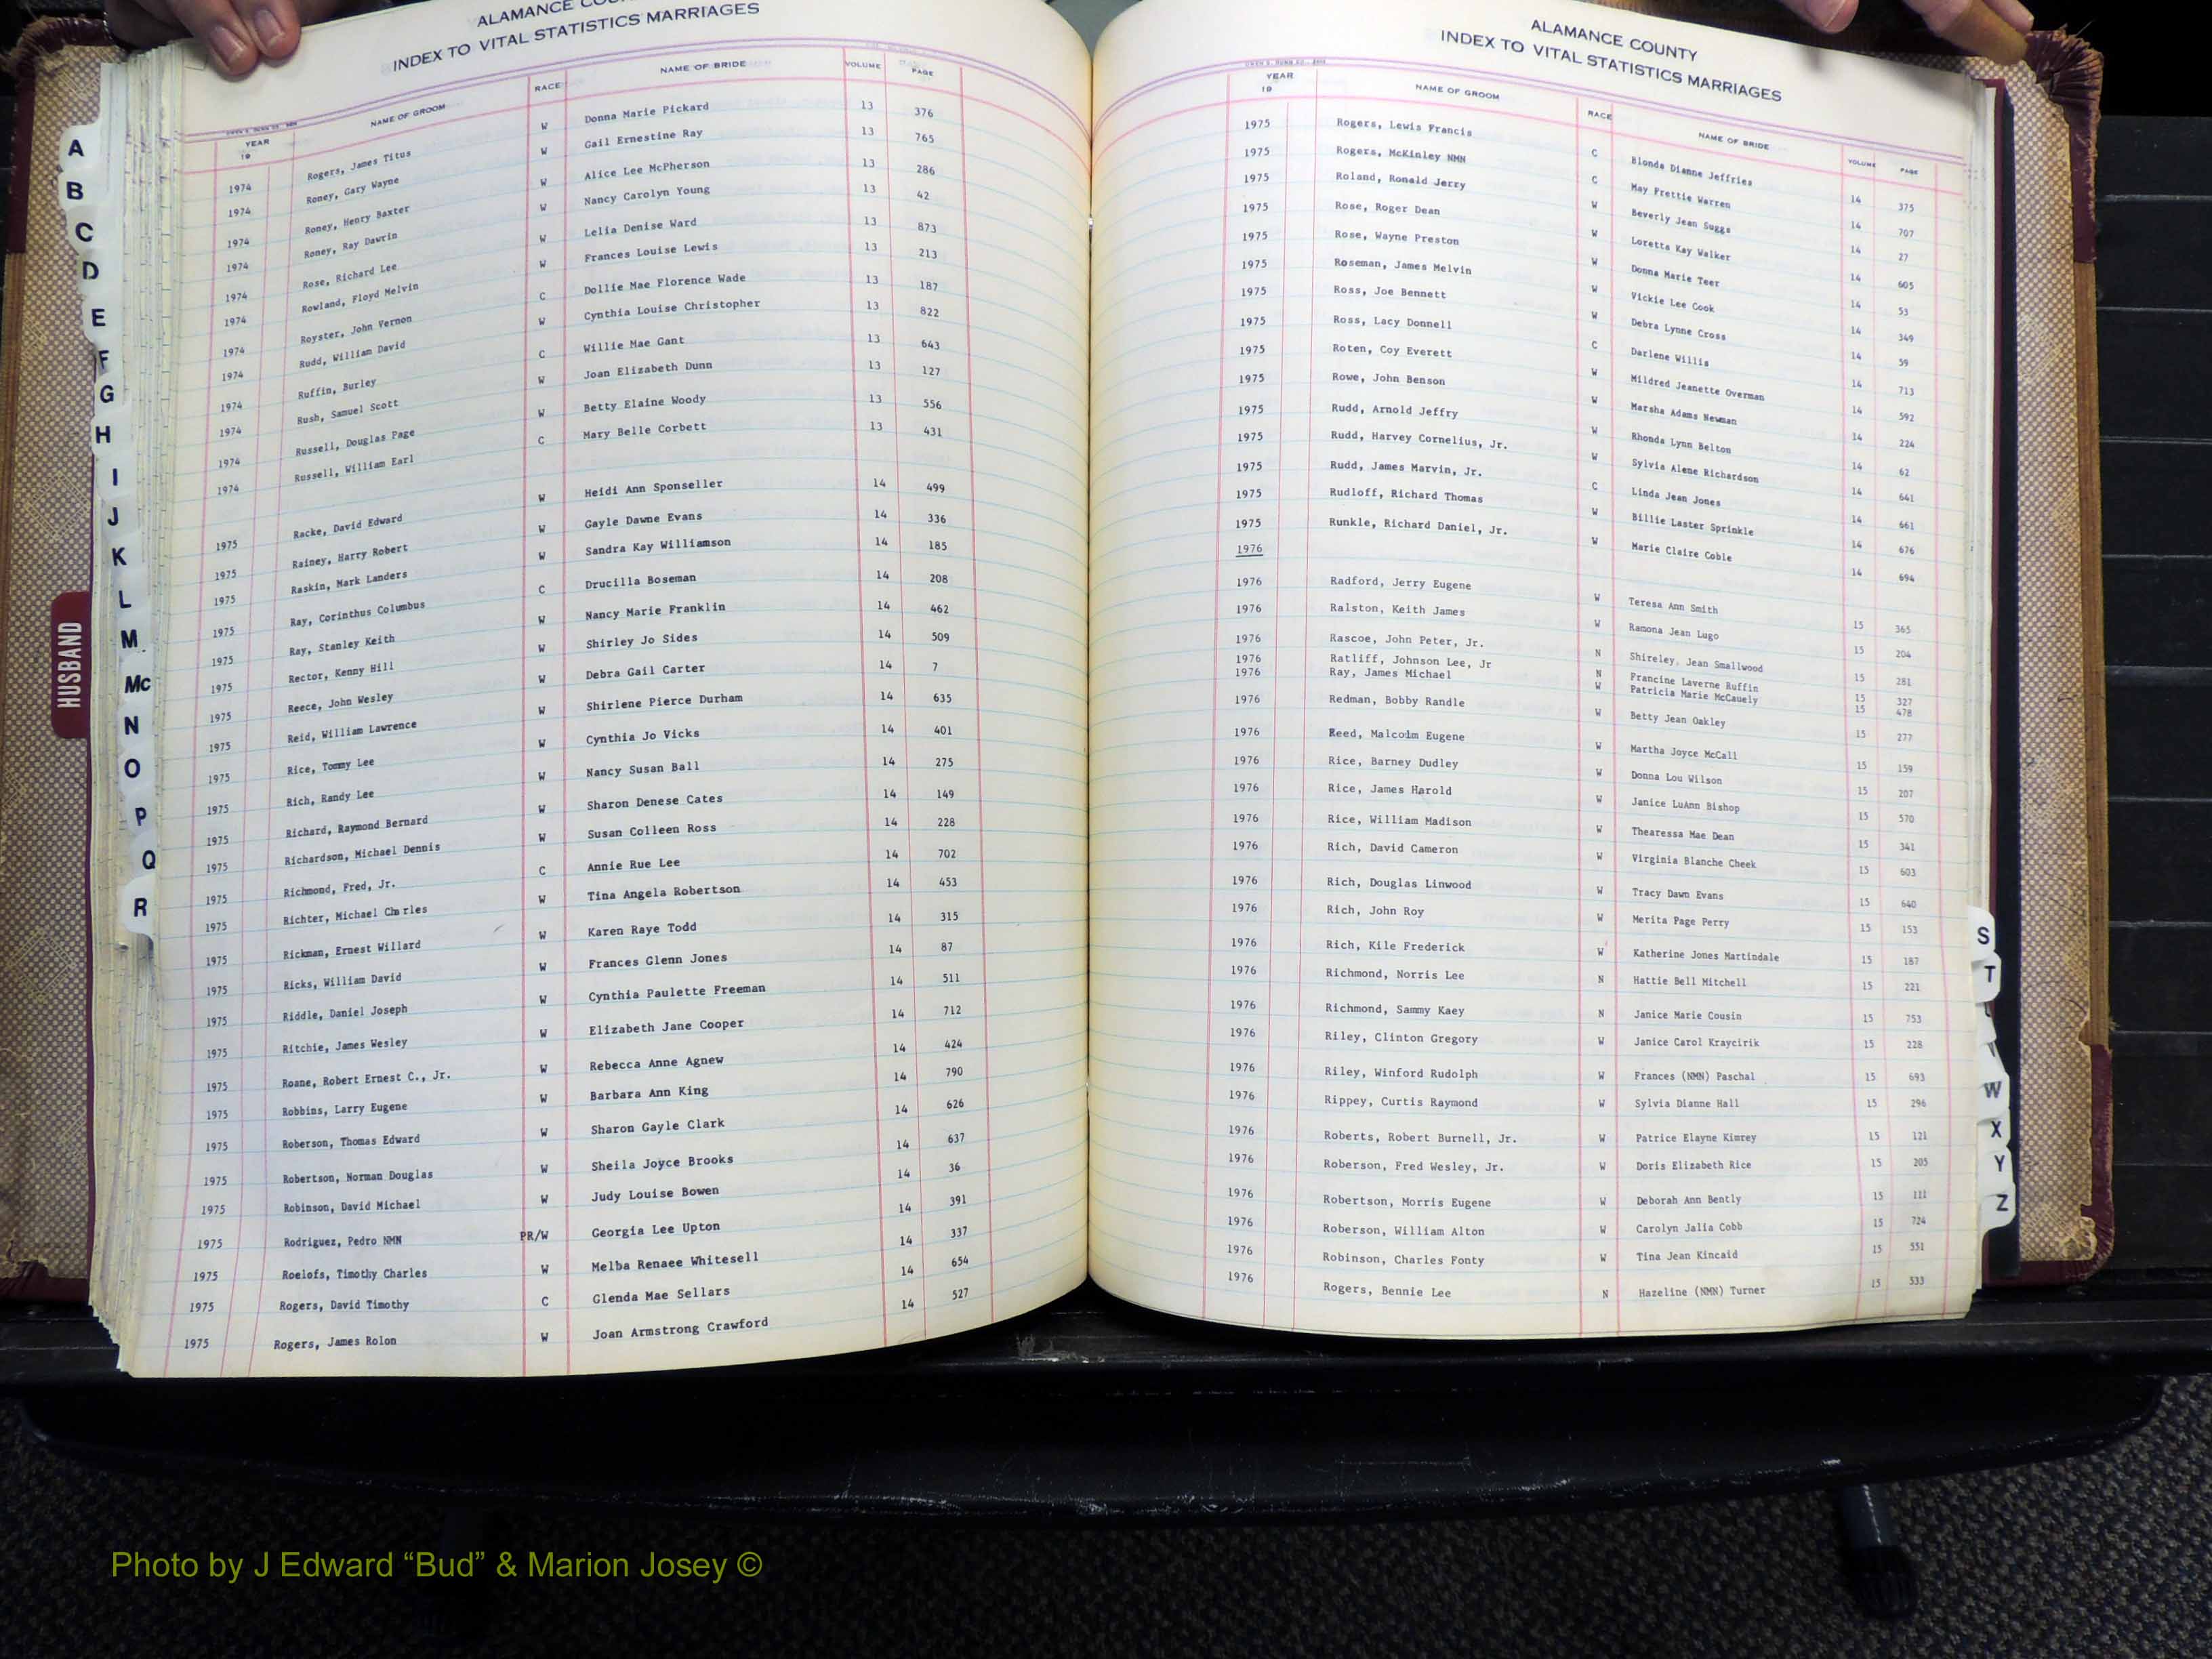 ALAMANCE COU
INDEX TO VITAL STATISTICS MARRIAGES
YEAR 19 NAME OF GROOM RACE NAME OF BRIDE VOLUME PAGE
1974 Rogers, James Titus W Donna Marie Pickard 13 376
1974 Roney, Gary Wayne W Gail Ernestine Ray 13 765
1974 Roney, Henry Baxter W Alice Lee McPherson 13 286
1974 Roney, Ray Dawrin W Nancy Carolyn Young 13 42
1974 Rose, Richard Lee W Lelia Denise Ward 13 873
1974 Rowland, Floyd Melvin W Frances Louise Lewis 13 213
1974 Royster, John Vernon C Dollie Mae Florence Wade 13 187
1974 Rudd, William David W Cynthia Louise Christopher 13 822
1974 Ruffin, Burley C Willie Mae Gant 13 643
1974 Rush, Samuel Scott W Joan Elizabeth Dunn 13 127
1974 Russell, Douglas Page W Betty Elaine Woody 13 556
1974 Russell, William Earl C Mary Belle Corbett 13 431
1975 Racke, David Edward W Heidi Ann Sponseller 14 499
1975 Rainey, Harry Robert W Gayle Dawne Evans 14 336
1975 Raskin, Mark Landers W Sandra Kay Williamson 14 185
1975 Ray, Corinthus Columbus C Drucilla Boseman 14 208
1975 Ray, Stanley Keith W Nancy Marie Franklin 14 462
1975 Rector, Kenny Hill W Shirley Jo Sides 14 509
1975 Reece, John Wesley W Debra Gail Carter 14 7
1975 Reid, William Lawrence W Shirlene Pierce Durham 14 635
1975 Rice, Tommy Lee W Cynthia Jo Vicks 14 401
1975 Rich, Randy Lee W Nancy Susan Ball 14 275
1975 Richard, Raymond Bernard W Sharon Denese Cates 14 149
1975 Richardson, Michael Dennis W Susan Colleen Ross 14 228
1975 Richmond, Fred, Jr. C Annie Rue Lee 14 702
1975 Richter, Michael Charles W Tina Angela Robertson 14 453
1975 Rickman, Ernest Willard W Karen Raye Todd 14 315
1975 Ricks, William David W Frances Glenn Jones 14 87
1975 Riddle, Daniel Joseph W Cynthia Paulette Freeman 14 511
1975 Ritchie, James Wesley W Elizabeth Jane Cooper 14 712
1975 Roane, Robert Ernest C., Jr. W Rebecca Anne Agnew 14 424
1975 Robbins, Larry Eugene W Barbara Ann King 14 790
1975 Roberson, Thomas Edward W Sharon Gayle Clark 14 626
1975 Robertson, Norman Douglas W Sheila Joyce Brooks 14 637
1975 Robinson, David Michael W Judy Louise Bowen 14 36
1975 Rodriguez, Pedro NMN PR/W Georgia Lee Upton 14 391
1975 Roelofs, Timothy Charles W Melba Renaee Whitesell 14 337
1975 Rogers, David Timothy C Glenda Mae Sellars 14 654
1975 Rogers, James Rolon W Joan Armstrong Crawford 14 527
A
B
C
D
E
F
G
H
I
J
K
L
M
Mc
N
O
P
Q
R
HUSBAND
ALAMANCE COUNTY
INDEX TO VITAL STATISTICS MARRIAGES
YEAR 19 NAME OF GROOM RACE NAME OF BRIDE VOLUME PAGE
1975 Rogers, Lewis Francis C Blonda Dianne Jeffries 14 375
1975 Rogers, McKinley NMN C May Prettie Warren 14 707
1975 Roland, Ronald Jerry W Beverly Jean Suggs 14 27
1975 Rose, Roger Dean W Loretta Kay Walker 14 605
1975 Rose, Wayne Preston W Donna Marie Teer 14 53
1975 Roseman, James Melvin W Vickie Lee Cook 14 349
1975 Ross, Joe Bennett W Debra Lynne Cross 14 59
1975 Ross, Lacy Donnell C Darlene Willis 14 713
1975 Roten, Coy Everett W Mildred Jeanette Overman 14 592
1975 Rowe, John Benson W Marsha Adams Newman 14 224
1975 Rudd, Arnold Jeffry W Rhonda Lynn Belton 14 62
1975 Rudd, Harvey Cornelius, Jr. W Sylvia Alene Richardson 14 641
1975 Rudd, James Marvin, Jr. C Linda Jean Jones 14 661
1975 Rudloff, Richard Thomas W Billie Laster Sprinkle 14 676
1975 Runkle, Richard Daniel, Jr. W Marie Claire Coble 14 694
1976
1976 Radford, Jerry Eugene W Teresa Ann Smith 15 365
1976 Ralston, Keith James W Ramona Jean Lugo 15 204
1976 Rascoe, John Peter, Jr. N Shireley Jean Smallwood 15 281
1976 Ratliff, Johnson Lee, Jr N Francine Laverne Ruffin 15 327
1976 Ray, James Michael W Patricia Marie McCauely 15 478
1976 Redman, Bobby Randle W Betty Jean Oakley 15 277
1976 Reed, Malcolm Eugene W Martha Joyce McCall 15 159
1976 Rice, Barney Dudley W Donna Lou Wilson 15 207
1976 Rice, James Harold W Janice LuAnn Bishop 15 570
1976 Rice, William Madison W Thearessa Mae Dean 15 341
1976 Rich, David Cameron W Virginia Blanche Cheek 15 603
1976 Rich, Douglas Linwood W Tracy Dawn Evans 15 640
1976 Rich, John Roy W Merita Page Perry 15 153
1976 Rich, Kile Frederick W Katherine Jones Martindale 15 187
1976 Richmond, Norris Lee N Hattie Bell Mitchell 15 221
1976 Richmond, Sammy Kaey N Janice Marie Cousin 15 753
1976 Riley, Clinton Gregory W Janice Carol Kraycirik 15 228
1976 Riley, Winford Rudolph W Frances (NMN) Paschal 15 693
1976 Rippey, Curtis Raymond W Sylvia Dianne Hall 15 296
1976 Roberts, Robert Burnell, Jr. W Patrice Elayne Kimrey 15 121
1976 Roberson, Fred Wesley, Jr. W Doris Elizabeth Rice 15 205
1976 Robertson, Morris Eugene W Deborah Ann Bently 15 111
1976 Roberson, William Alton W Carolyn Jalia Cobb 15 724
1976 Robinson, Charles Fonty W Tina Jean Kincaid 15 551
1976 Rogers, Bennie Lee N Hazeline (NMN) Turner 15 533
S
T
W
X
Y
Z
Photo by J Edward “Bud” & Marion Josey ©